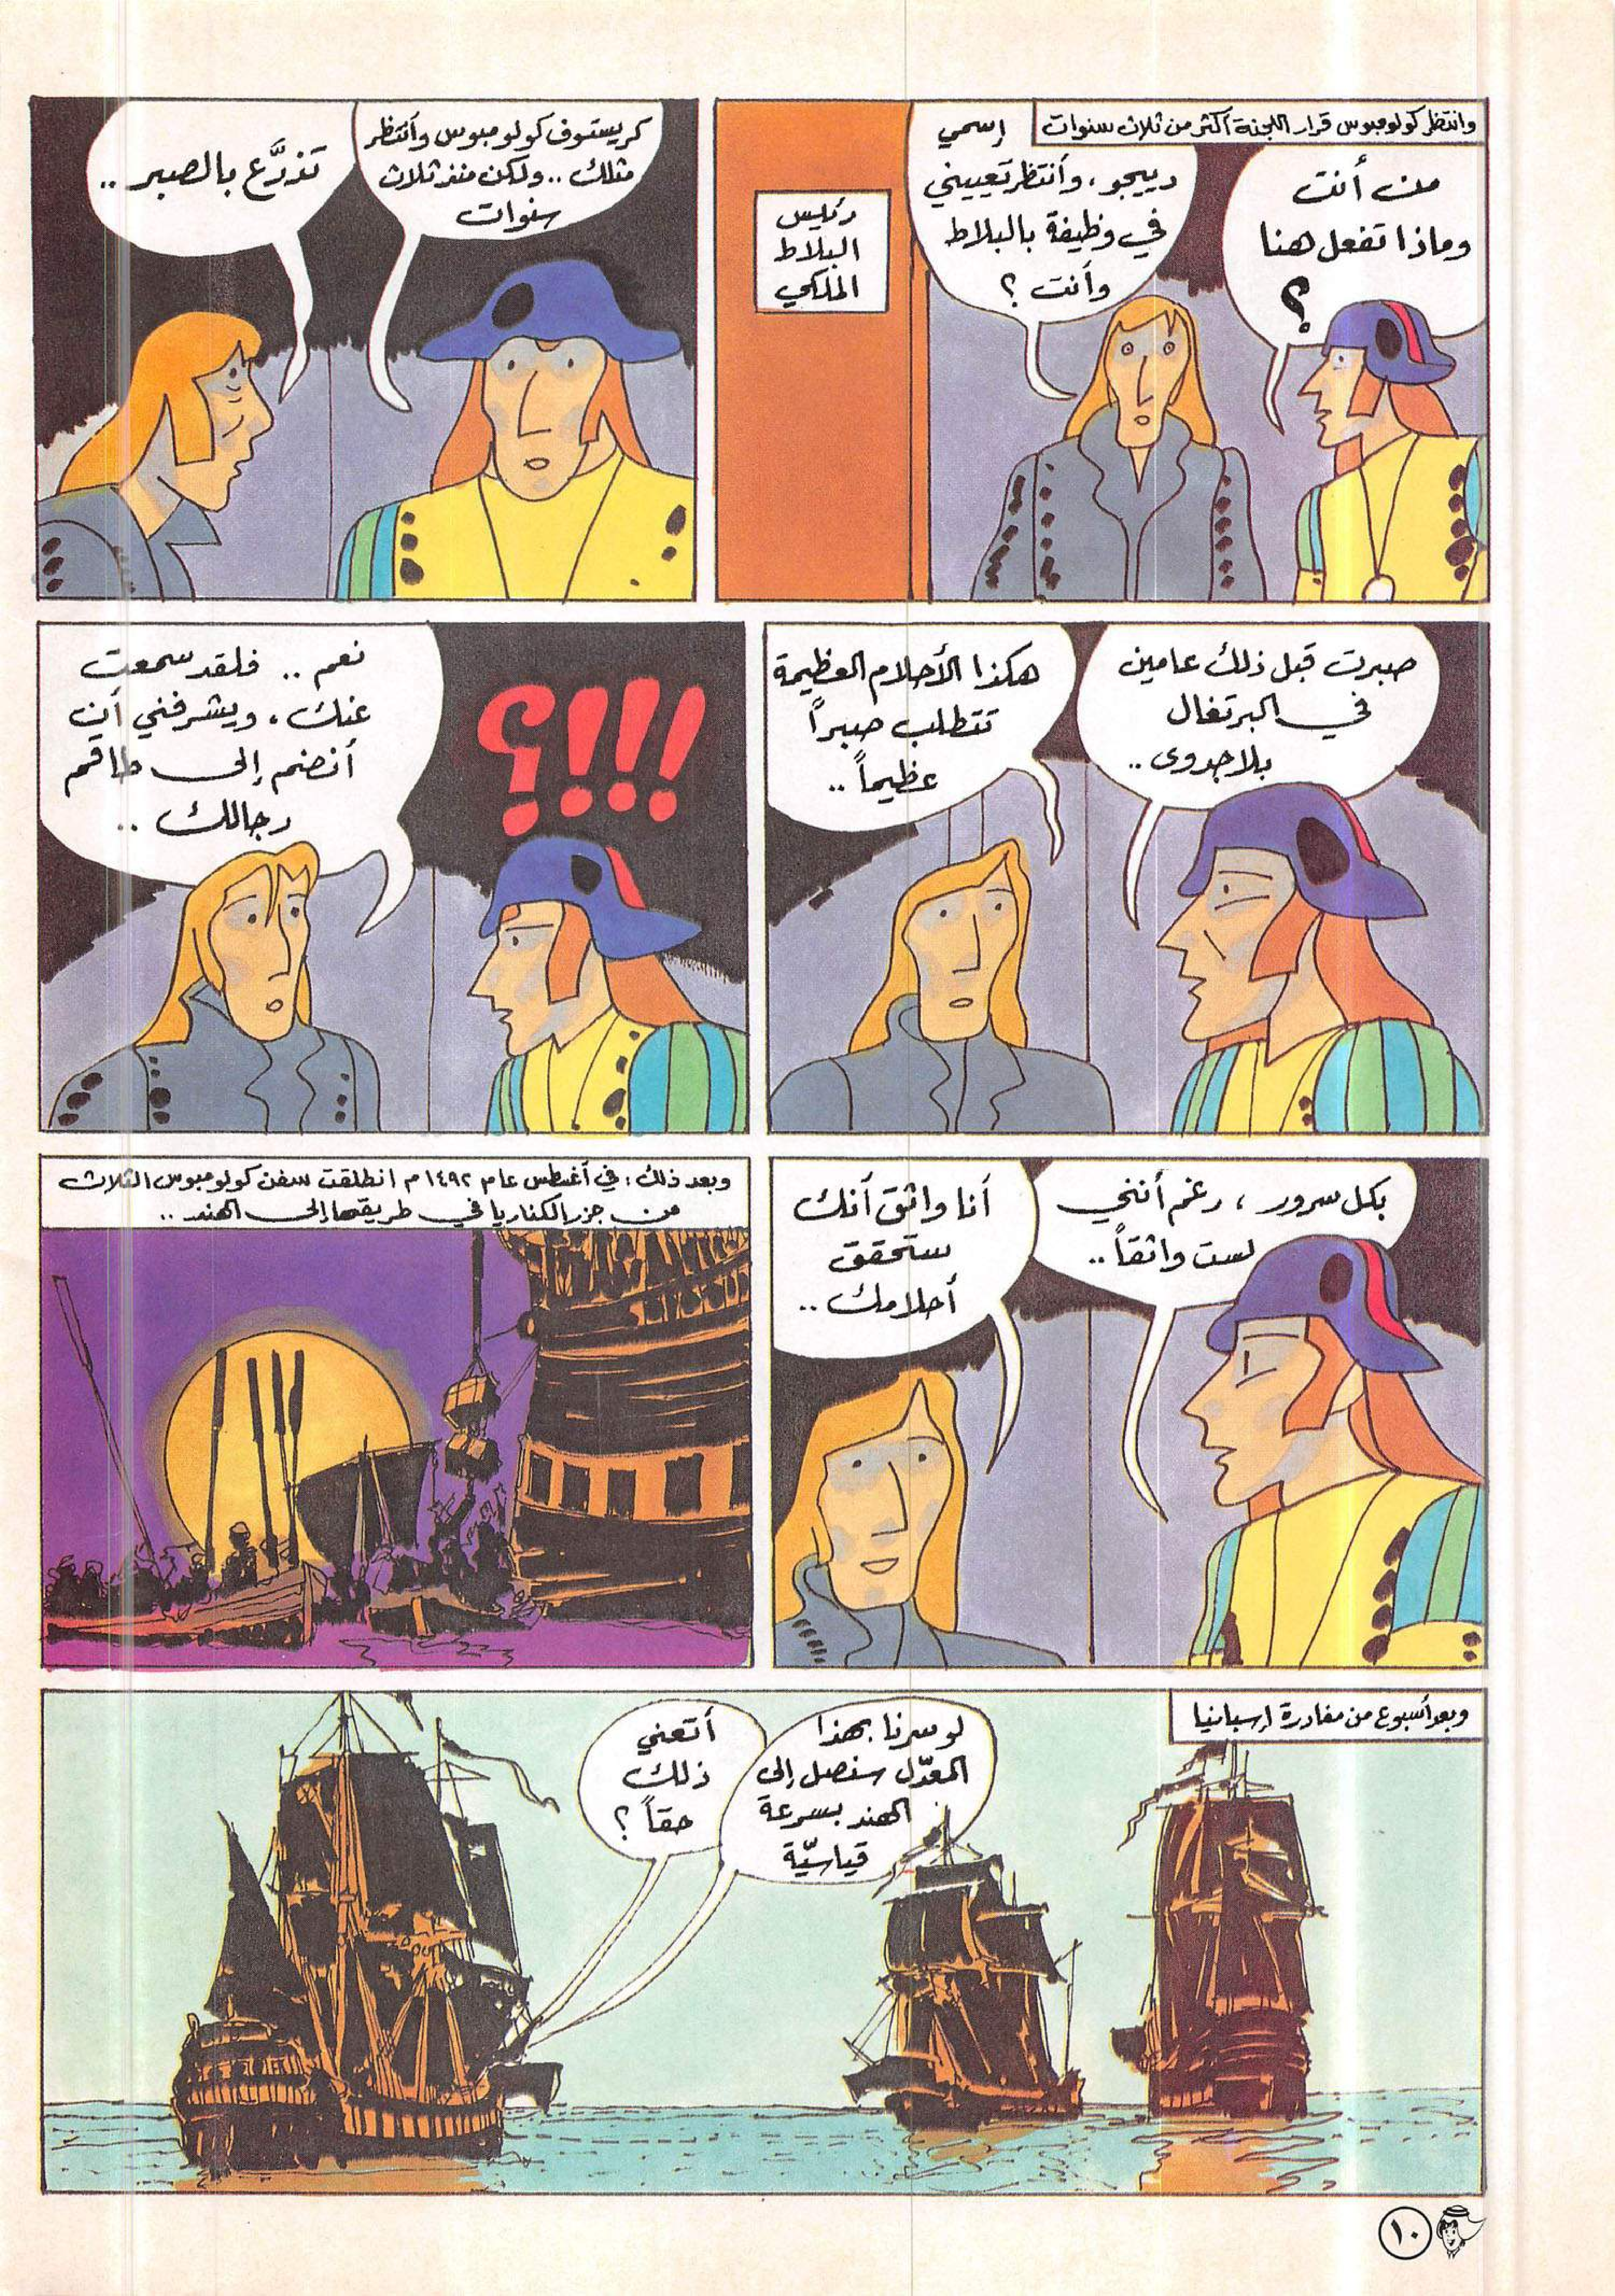 وانتظر كولومبوس قرار اللجنة أكثر من ثلاث سنوات
من أنت
وماذا تفعل هنا
؟
إسمي
دييجو، وأنتظر تعييني
في وظيفة بالبلاط
وأنت ؟
رئيس
البلاط
الملكي
كريستوف كولومبوس وأنتظر
مثلك .. ولكن منذ ثلاث
سنوات
تذرَّع بالصبر ..
صبرت قبل ذلك عامين
في البرتغال
بلا جدوى ..
هكذا الأحلام العظيمة
تتطلب صبراً
عظيماً ..
!!!؟
نعم .. فلقد سمعت
عنك، ويشرفني أن
أنضم إلى طاقم
رجالك ..
بكل سرور، رغم أنني
لست واثقاً ..
أنا واثق أنك
ستحقق
أحلامك ..
وبعد ذلك : في أغسطس عام ١٤٩٢ م انطلقت سفن كولومبوس الثلاث
من جزر الكناريا في طريقها إلى الهند ..
وبعد أسبوع من مغادرة إسبانيا
لو سرنا بهذا
المعدّل سنصل إلى
الهند بسرعة
قياسيّة
أتعني
ذلك
حقاً ؟
١٠